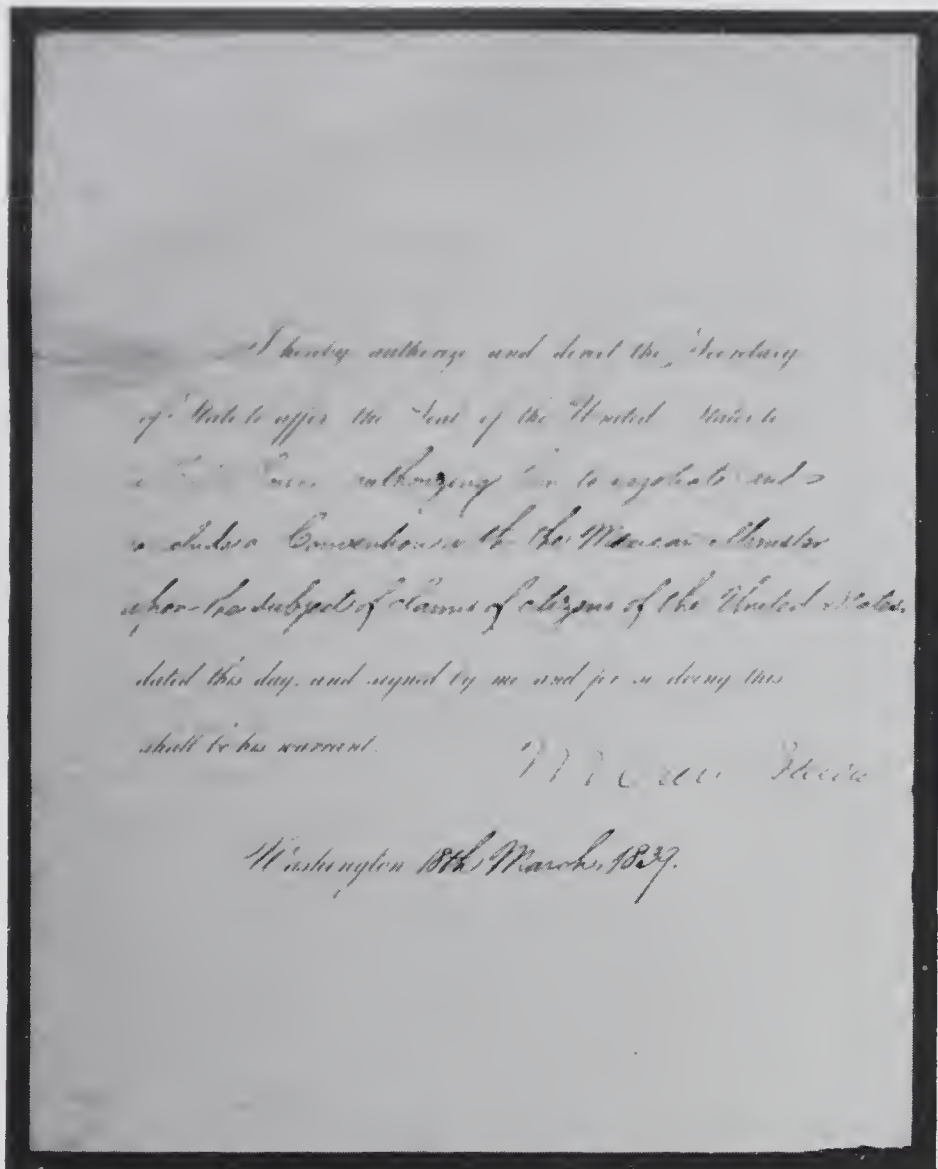 I hereby authorize and direct the Secretary
of State to affix the Seal of the United States to
a Full Power authorizing him to negotiate and
conclude a Convention with the Mexican Minister
upon the subject of claims of citizens of the United States.
dated this day, and signed by me and for so doing this
shall be his warrant.
M Van Buren
Washington 18th March, 1839.